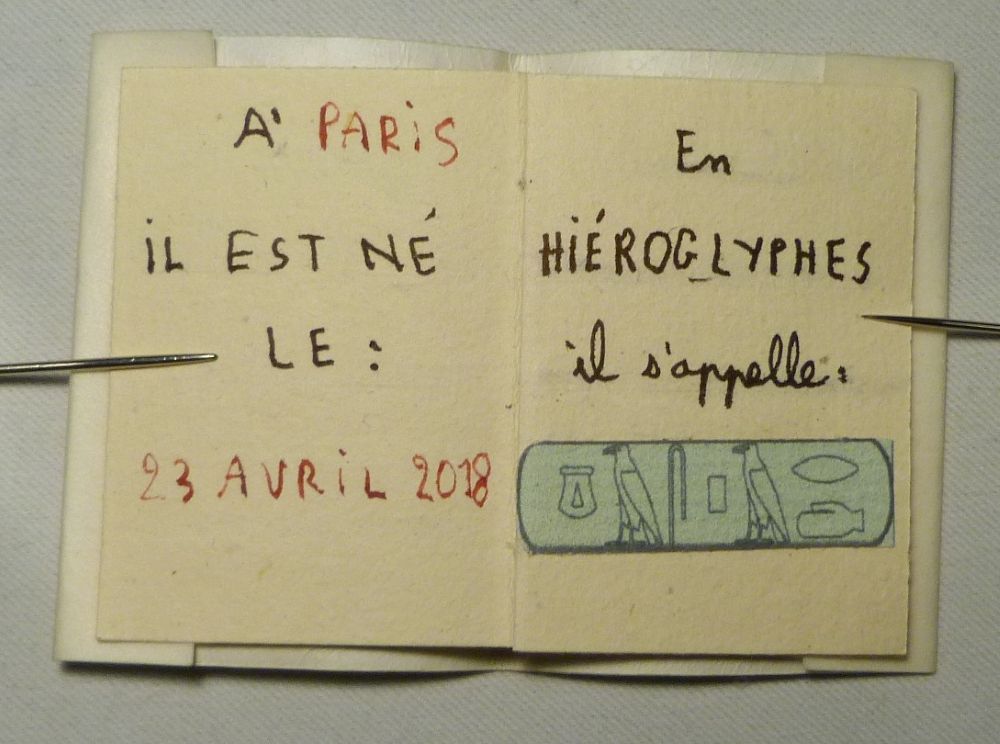 À PARiS
iL EST NÉ
LE :
23 AVRiL 2018
En
HiÉROGLYPHES
il s'appelle :
𓎼𓄿𓋴𓊪𓄿𓂋𓂧